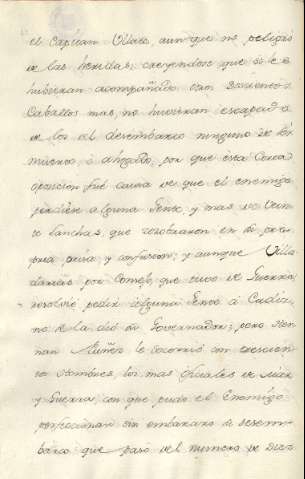 el Capitan Villars, aunque no peligró
de las heridas; creyendose que si le
hubieran acompañado con doscientos
Caballos mas, no huvieran escapado
de los del desembarco ninguno de los
muertos, ó ahogados, por que esta corta
oposicion fué causa de que el enemigo
perdiese alguna Gente, y mas de Vein
te lanchas, que zozobraron en su pro
pria prisa, y confusion; y aunque Villa
darias por Consejo, que tuvo de Guerra
resolvió pedir alguna Gente á Cadiz,
no se la dió su Governador; pero Her
nan Nuñez le socorrió con trescien
tos Hombres, los mas Oficiales de Mar
y Guerra, con que pudo el Enemigo
perfeccionar sin embarazo su desem
barco que pasó del numero de Diez